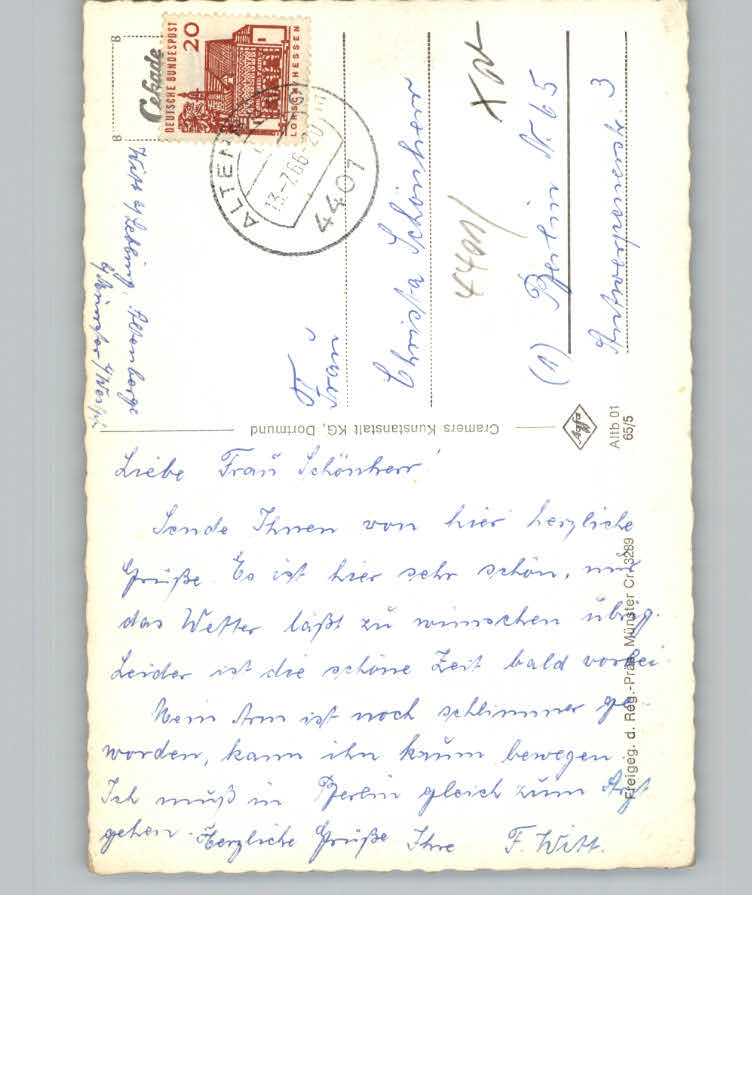 Cekade
DEUTSCHE BUNDESPOST
20
LORSCH/HESSEN
ALTENB
13.-7.66-20
4401
Witt b/ Altenberge
b/ Münster i/Westf.
Frau
Christa Schönherr
4401/
(1) Berlin N. 65
Antwerpenerstr. 3
Cramers Kunstanstalt KG, Dortmund
Agfa
Altb 01
65/5
Freigeg. d. Reg.-Präs. Münster Cr. 3289
Liebe Frau Schönherr!
Sende Ihnen von hier herzliche
Grüße. Es ist hier sehr schön, nur
das Wetter läßt zu wünschen übrig.
Leider ist die schöne Zeit bald vorbei.
Mein Arm ist noch schlimmer ge-
worden, kann ihn kaum bewegen.
Ich muß in Berlin gleich zum Arzt
gehen. Herzliche Grüße Ihre F. Witt.